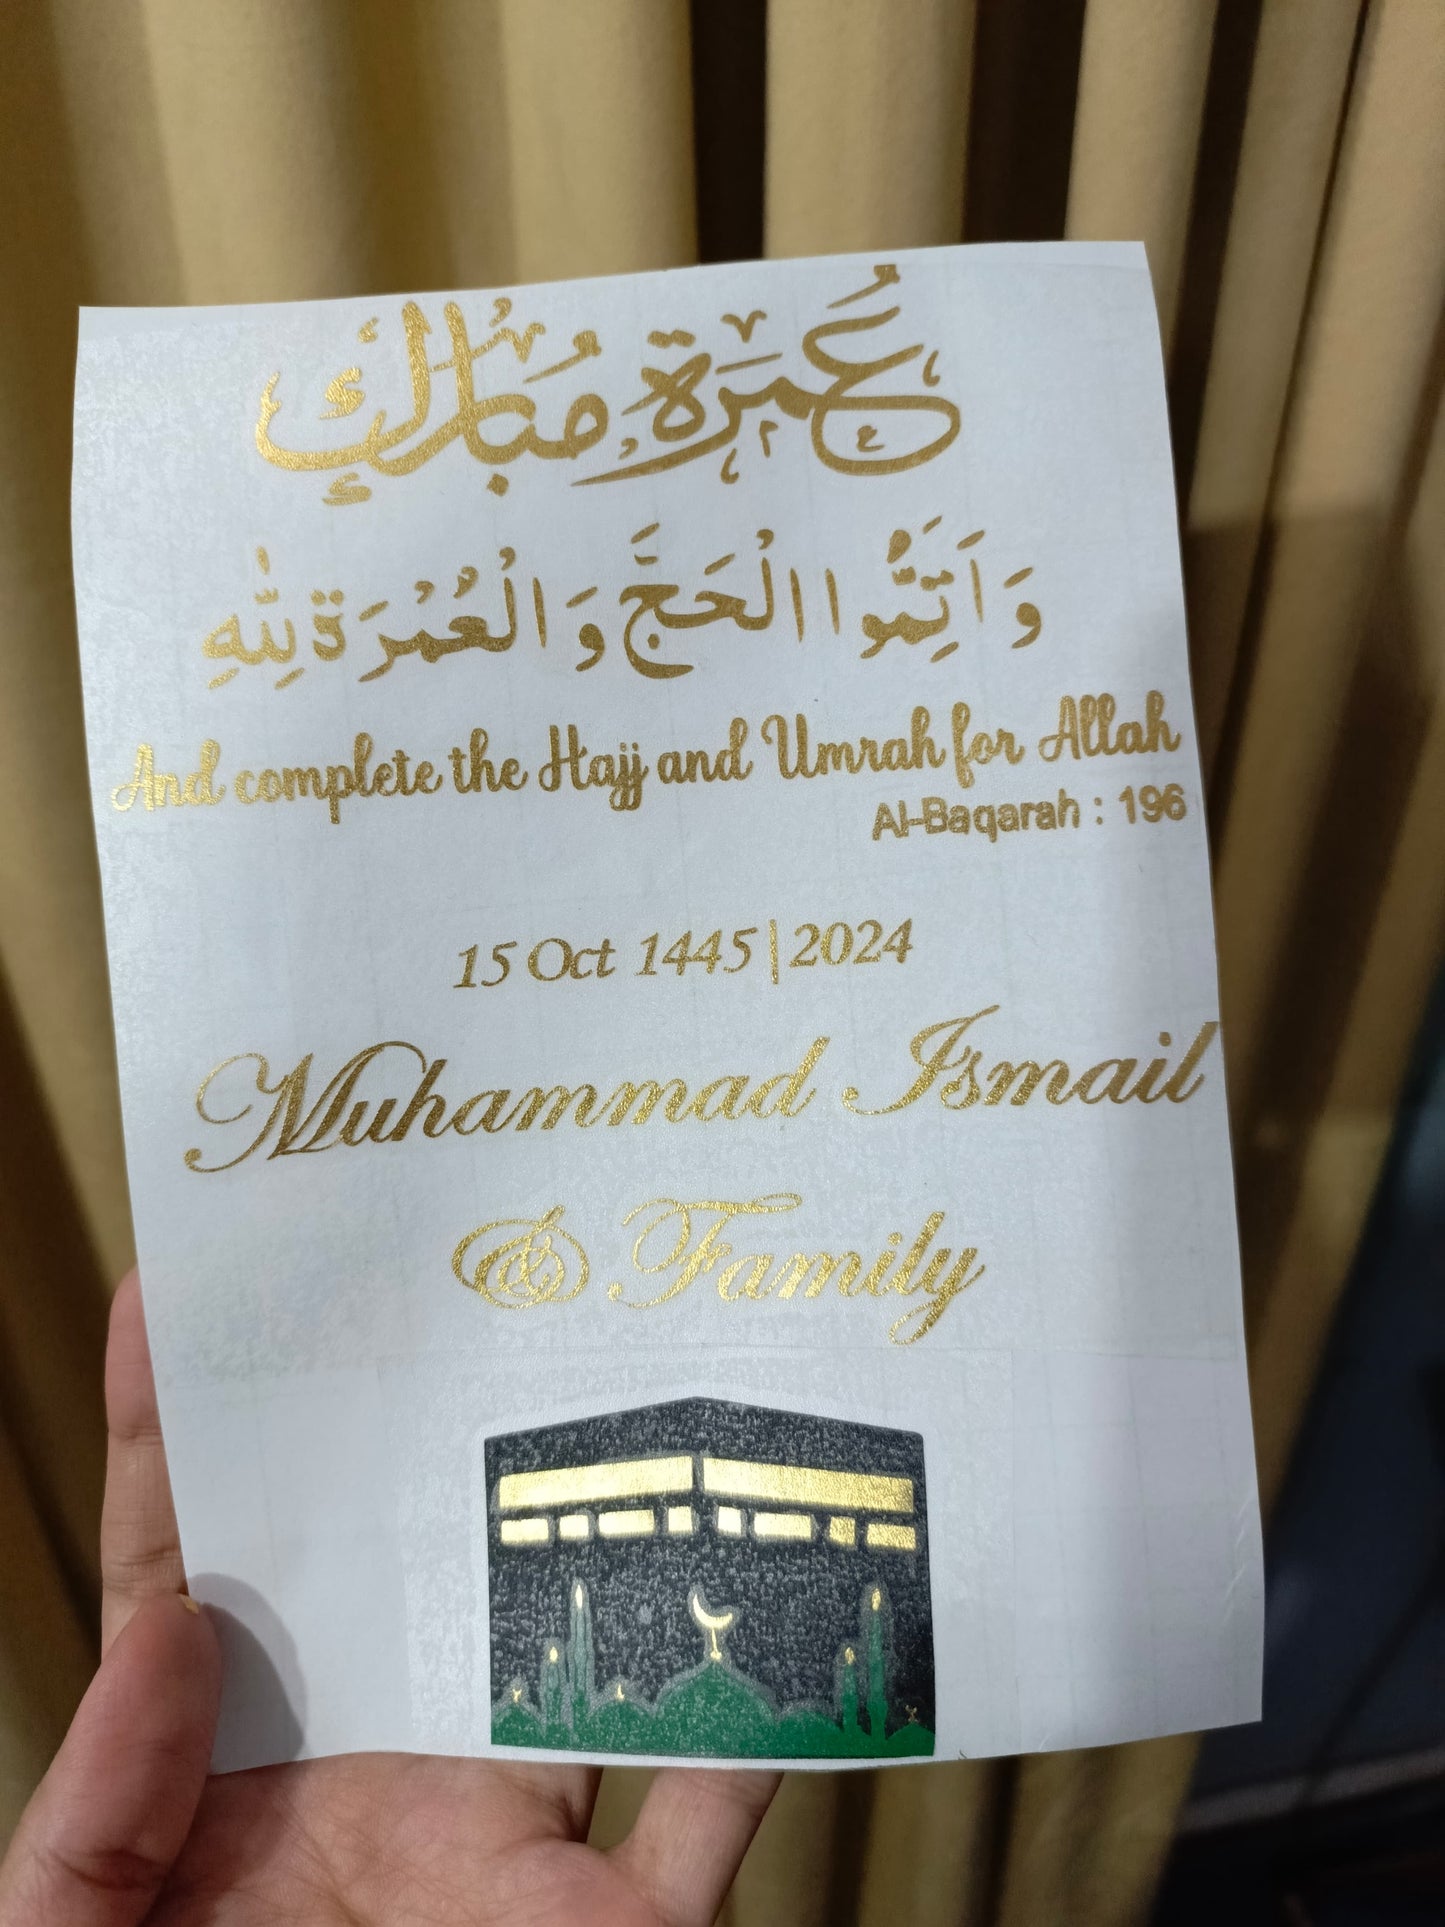 عُمرَة مُبارَك
وَاَتِمُّوا الْحَجَّ وَالْعُمْرَةَ لِلّٰهِ
And complete the Hajj and Umrah for Allah
Al-Baqarah : 196
15 Oct 1445|2024
Muhammad Ismail
& Family